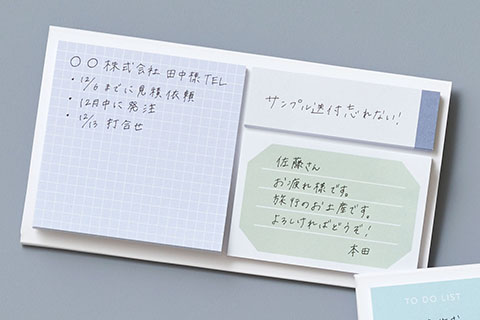 ○○株式会社 田中様TEL
・12/6までに見積依頼
・12月中に発注
・12/13 打合せ
サンプル送付忘れない!
佐藤さん
お疲れ様です。
旅行のお土産です。
よろしければどうぞ!
本田
TO DO LIST